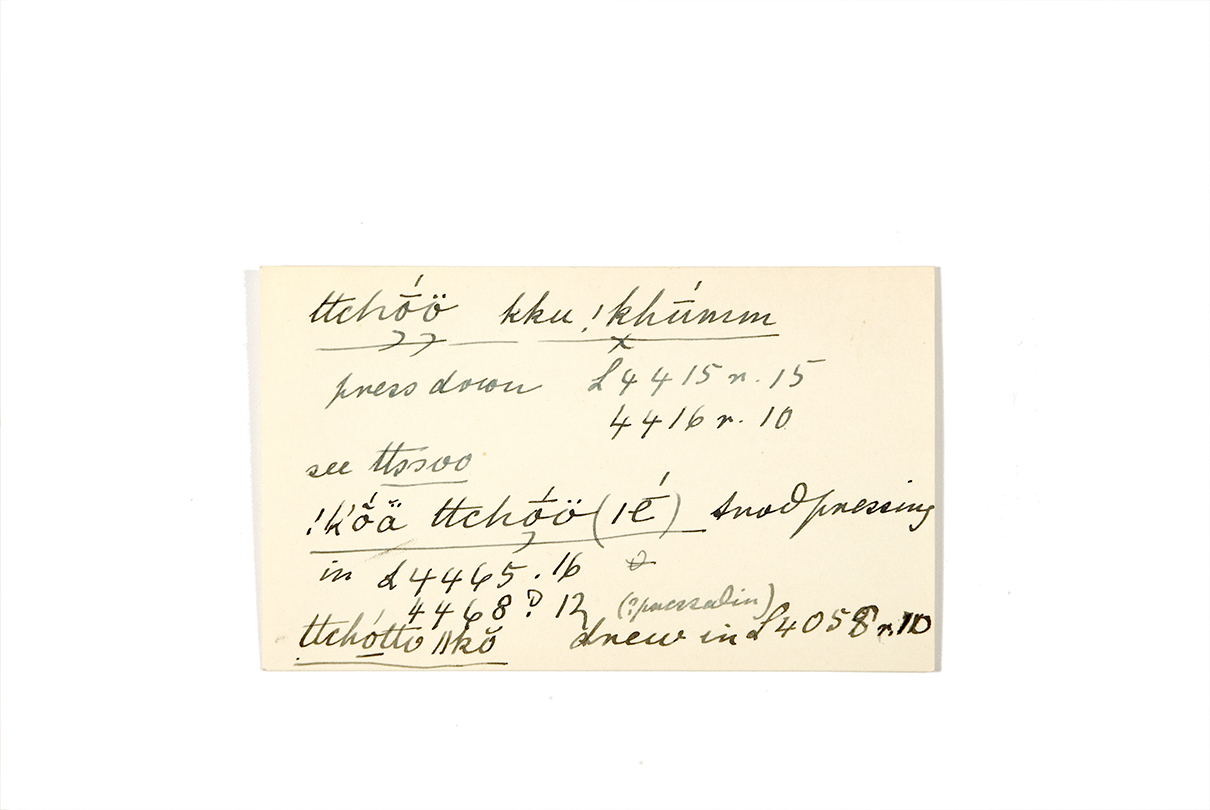 ttchṓö kku !khū́mm
press down L 4415 r. 15
4416 r. 10
see ttssoo
!k'ṓä ttchṓö (|ḗ) trod pressing
in L 4465 . 16
4468 ? 12 (? pressed in)
ttchótto ǁkŏ drew in L 4058 r. 10